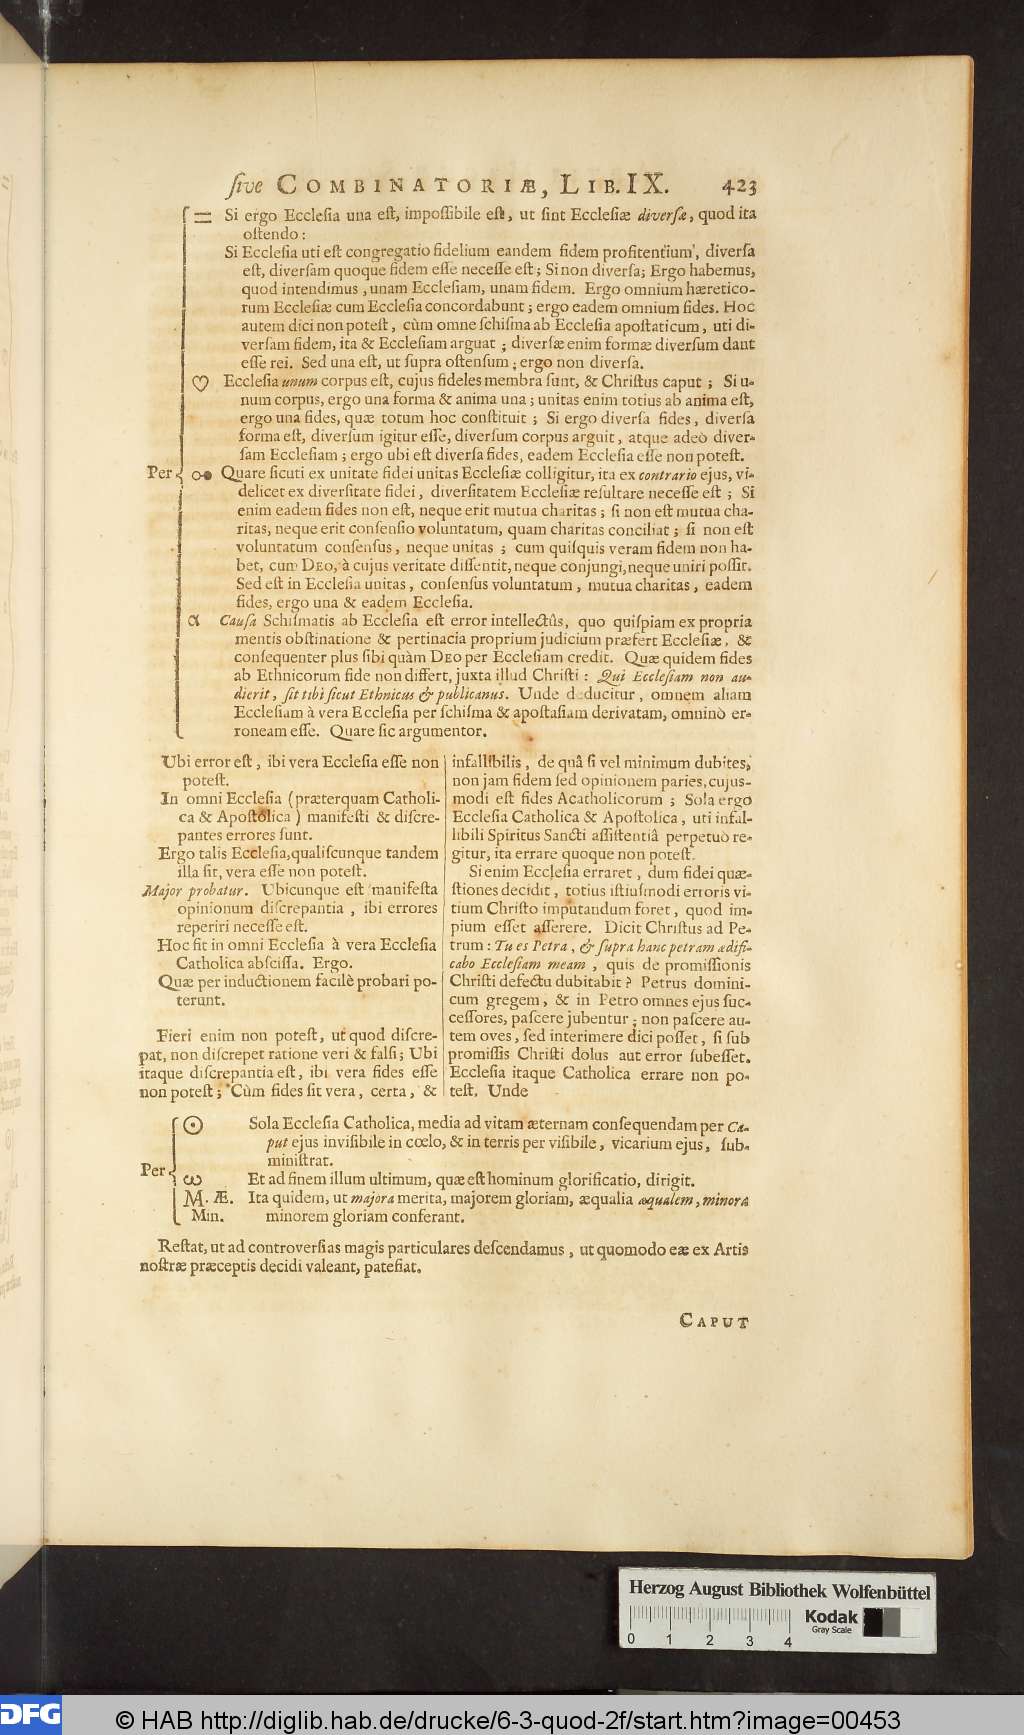 ſive COMBINATORIÆ, LIB. IX. 423
= Si ergo Eccleſia una eſt, impoſſibile eſt, ut ſint Eccleſiæ diverſæ, quod ita
oſtendo:
Si Eccleſia uti eſt congregatio fidelium eandem fidem profitentium, diverſa
eſt, diverſam quoque fidem eſſe neceſſe eſt; Si non diverſa; Ergo habemus,
quod intendimus, unam Eccleſiam, unam fidem. Ergo omnium hæretico-
rum Eccleſiæ cum Eccleſia concordabunt; ergo eadem omnium fides. Hoc
autem dici non poteſt, cùm omne ſchiſma ab Eccleſia apoſtaticum, uti di-
verſam fidem, ita & Eccleſiam arguat; diverſæ enim formæ diverſum dant
eſſe rei. Sed una eſt, ut ſupra oſtenſum; ergo non diverſa.
♡ Eccleſia unum corpus eſt, cujus fideles membra ſunt, & Chriſtus caput; Si u-
num corpus, ergo una forma & anima una; unitas enim totius ab anima eſt,
ergo una fides, quæ totum hoc conſtituit; Si ergo diverſa fides, diverſa
forma eſt, diverſum igitur eſſe, diverſum corpus arguit, atque adeò diver-
ſam Eccleſiam; ergo ubi eſt diverſa fides, eadem Eccleſia eſſe non poteſt.
Per ○-● Quare ſicuti ex unitate fidei unitas Eccleſiæ colligitur, ita ex contrario ejus, vi-
delicet ex diverſitate fidei, diverſitatem Eccleſiæ reſultare neceſſe eſt; Si
enim eadem fides non eſt, neque erit mutua charitas; ſi non eſt mutua cha-
ritas, neque erit conſenſio voluntatum, quam charitas conciliat; ſi non eſt
voluntatum conſenſus, neque unitas; cum quiſquis veram fidem non ha-
bet, cum DEO, à cujus veritate diſſentit, neque conjungi, neque uniri poſſit.
Sed eſt in Eccleſia unitas, conſenſus voluntatum, mutua charitas, eadem
fides, ergo una & eadem Eccleſia.
α Cauſa Schiſmatis ab Eccleſia eſt error intellectûs, quo quiſpiam ex propria
mentis obſtinatione & pertinacia proprium judicium præfert Eccleſiæ, &
conſequenter plus ſibi quàm DEO per Eccleſiam credit. Quæ quidem fides
ab Ethnicorum fide non differt, juxta illud Chriſti: Qui Eccleſiam non au-
dierit, ſit tibi ſicut Ethnicus & publicanus. Unde deducitur, omnem aliam
Eccleſiam à vera Eccleſia per ſchiſma & apoſtaſiam derivatam, omninò er-
roneam eſſe. Quare ſic argumentor.
Ubi error eſt, ibi vera Eccleſia eſſe non
poteſt.
In omni Eccleſia (præterquam Catholi-
ca & Apoſtolica) manifeſti & diſcre-
pantes errores ſunt.
Ergo talis Eccleſia, qualiſcunque tandem
illa ſit, vera eſſe non poteſt.
Major probatur. Ubicunque eſt manifeſta
opinionum diſcrepantia, ibi errores
reperiri neceſſe eſt.
Hoc fit in omni Eccleſia à vera Eccleſia
Catholica abſciſſa. Ergo.
Quæ per inductionem facilè probari po-
terunt.
Fieri enim non poteſt, ut quod diſcre-
pat, non diſcrepet ratione veri & falſi; Ubi
itaque diſcrepantia eſt, ibi vera fides eſſe
non poteſt; Cùm fides ſit vera, certa, &
infallibilis, de quâ ſi vel minimum dubites,
non jam fidem ſed opinionem paries, cujus-
modi eſt fides Acatholicorum; Sola ergo
Eccleſia Catholica & Apoſtolica, uti infal-
libili Spiritus Sancti aſſiſtentiâ perpetuò re-
gitur, ita errare quoque non poteſt.
Si enim Eccleſia erraret, dum fidei quæ-
ſtiones decidit, totius iſtiuſmodi erroris vi-
tium Chriſto imputandum foret, quod im-
pium eſſet aſſerere. Dicit Chriſtus ad Pe-
trum: Tu es Petra, & ſupra hanc petram ædifi-
cabo Eccleſiam meam, quis de promiſſionis
Chriſti defectu dubitabit? Petrus domini-
cum gregem, & in Petro omnes ejus ſuc-
ceſſores, paſcere jubentur; non paſcere au-
tem oves, ſed interimere dici poſſet, ſi ſub
promiſſis Chriſti dolus aut error ſubeſſet.
Eccleſia itaque Catholica errare non po-
teſt. Unde
☉ Sola Eccleſia Catholica, media ad vitam æternam conſequendam per Ca-
put ejus inviſibile in cœlo, & in terris per viſibile, vicarium ejus, ſub-
miniſtrat.
Per ω Et ad finem illum ultimum, quæ eſt hominum glorificatio, dirigit.
M. Æ. Ita quidem, ut majora merita, majorem gloriam, æqualia æqualem, minora
MIN. minorem gloriam conferant.
Reſtat, ut ad controverſias magis particulares deſcendamus, ut quomodo eæ ex Artis
noſtræ præceptis decidi valeant, patefiat.
CAPUT
Herzog August Bibliothek Wolfenbüttel
0 1 2 3 4
Kodak
Gray Scale
DFG © HAB http://diglib.hab.de/drucke/6-3-quod-2f/start.htm?image=00453